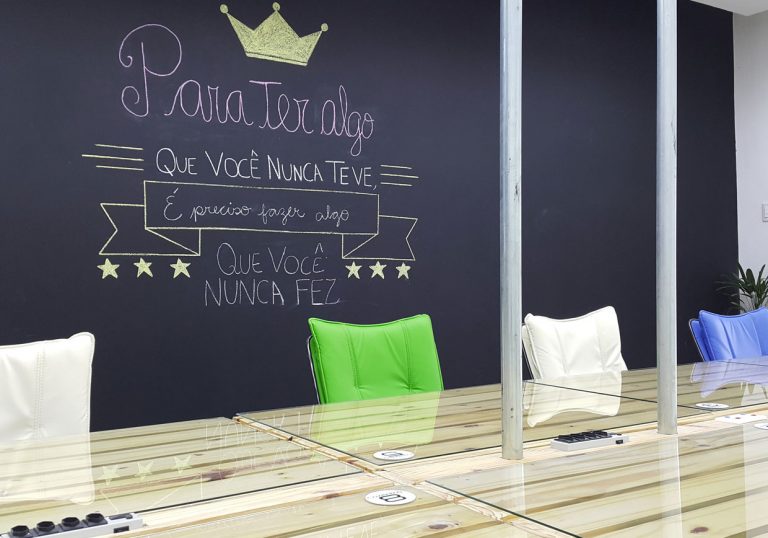 Para Ter algo
QUE VOCÊ NUNCA TEVE,
É preciso fazer algo
QUE VOCÊ
NUNCA FEZ